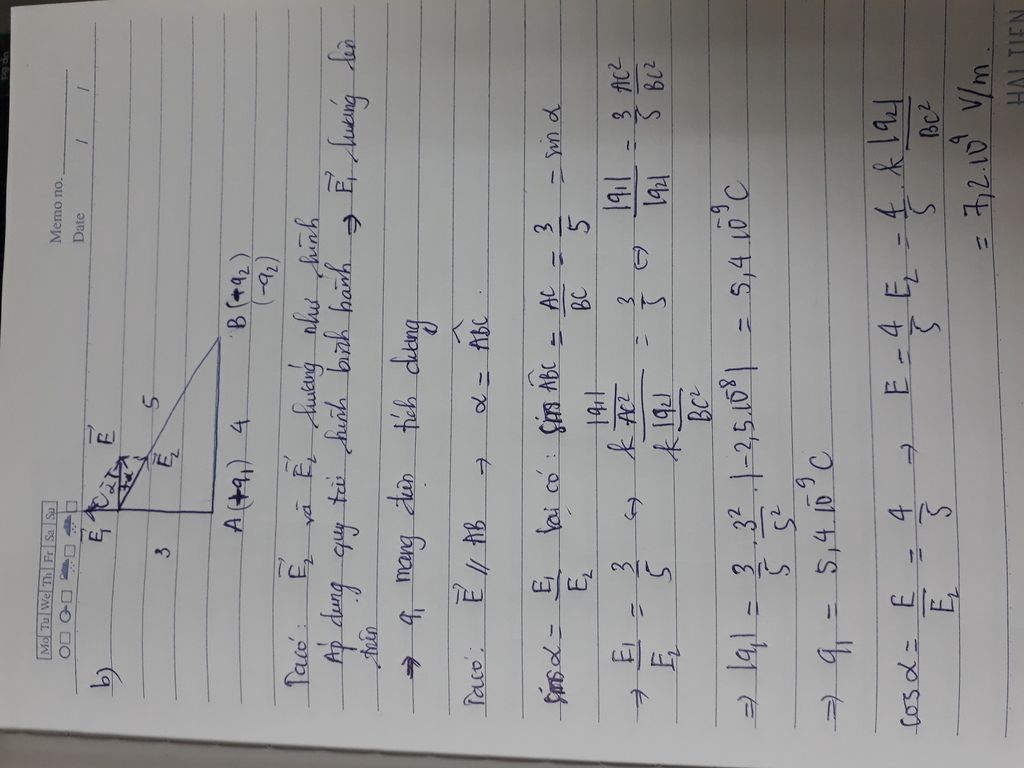 Memo no.
Date / /
Mo Tu We Th Fr Sa Su
b)
E₁⃗ E⃗
α
E₂⃗ 5
3
A (+q₁) 4 B (+q₂)
(-q₂)
Ta có: E₂⃗ và E₁⃗ hướng như hình
Áp dụng quy tắc hình bình hành → E₁⃗ hướng lên
trên
→ q₁ mang điện tích dương
Ta có: E⃗ // AB → α = ABC^
sinα = E₁/E₂ lại có: sin ABC^ = AC/BC = 3/5 = sin α
→ E₁/E₂ = 3/5 ↔ (k |q₁|/AC²)/(k |q₂|/BC²) = 3/5 ⇔ |q₁|/|q₂| = 3/5 AC²/BC²
⇒ |q₁| = 3/5 . 3²/5² . |-2,5.10⁻⁸| = 5,4 10⁻⁹ C
⇒ q₁ = 5,4.10⁻⁹ C
cosα = E/E₂ = 4/5 → E = 4/5 E₂ = 4/5 . k |q₂|/BC²
= 7,2.10⁹ V/m.
HẢI TIẾN